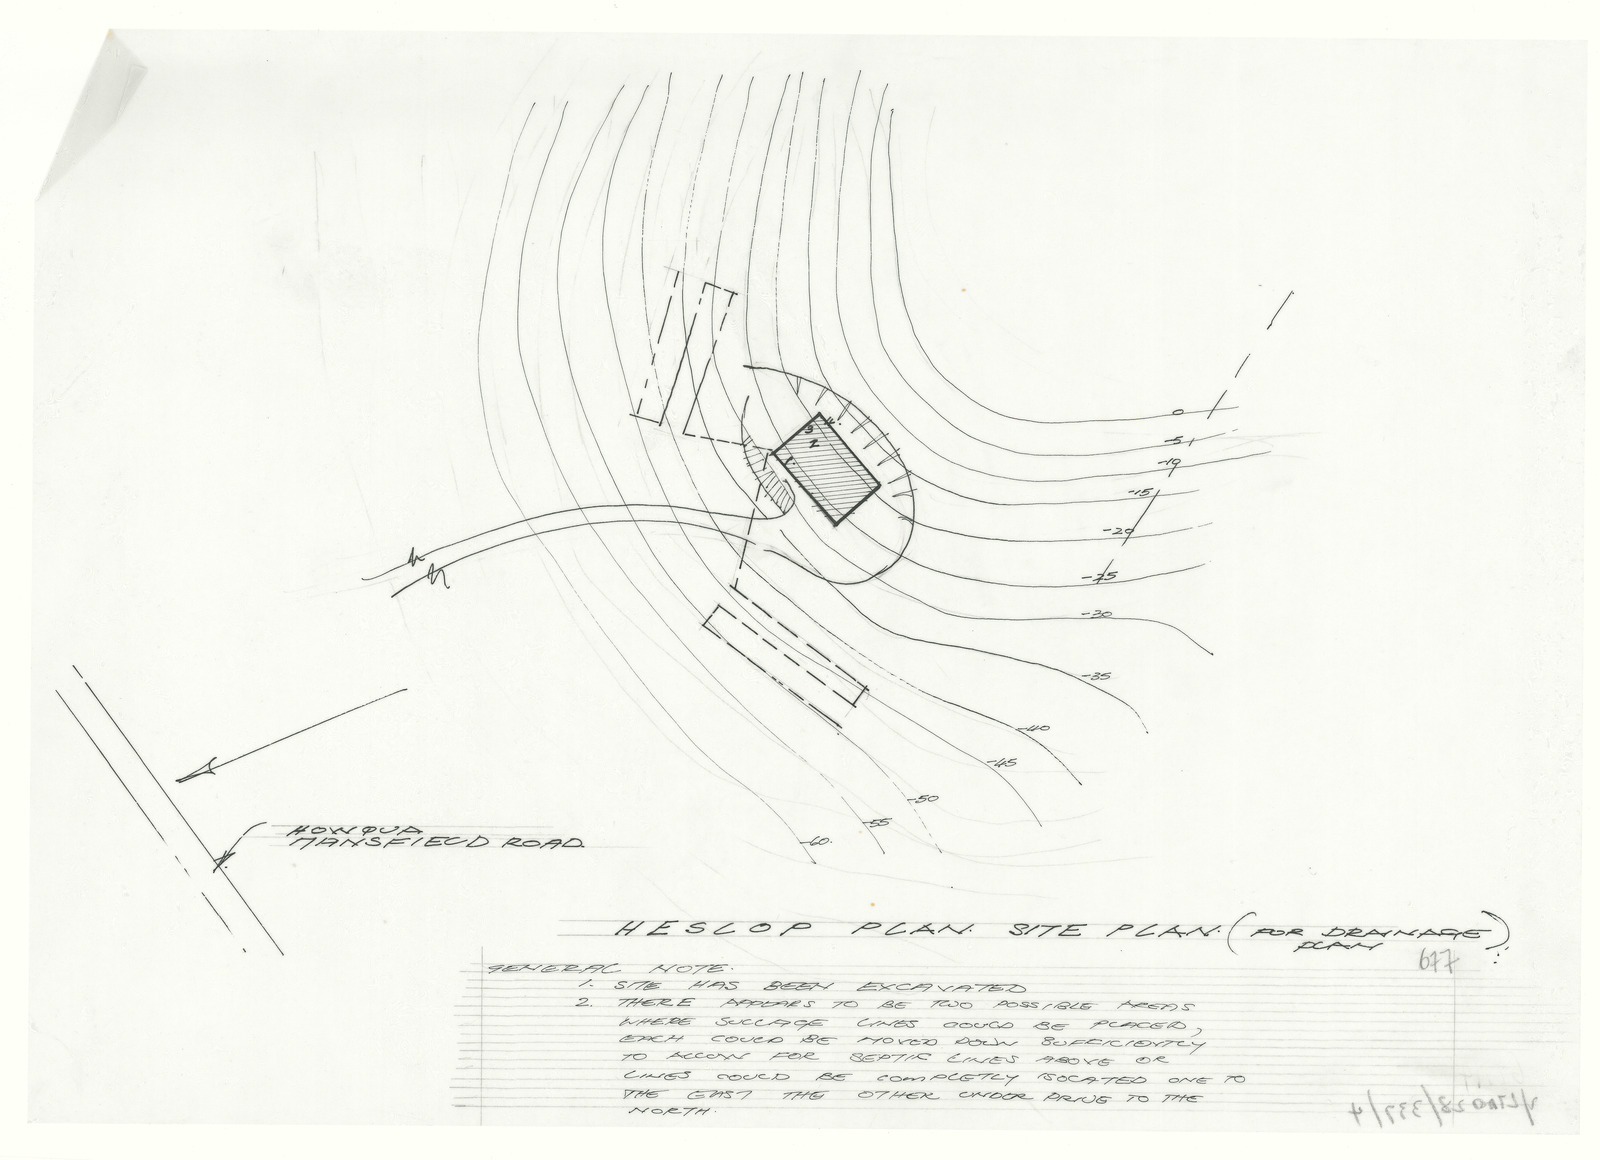 0
-5
-10
-15
-20
-25
-30
-35
-40
-45
-50
-55
-60.
3 4.
2
1.
HOWQUA
MANSFIELD ROAD.
HESLOP PLAN. SITE PLAN. (FOR DRAINAGE)
PLAN
677
GENERAL NOTE.
1. SITE HAS BEEN EXCAVATED
2. THERE APPEARS TO BE TWO POSSIBLE AREAS
WHERE SULLAGE LINES COULD BE PLACED,
EACH COULD BE MOVED DOWN SUFFICIENTLY
TO ALLOW FOR SEPTIC LINES ABOVE OR
LINES COULD BE COMPLETLY ISOLATED ONE TO
THE EAST THE OTHER UNDER DRIVE TO THE
NORTH.